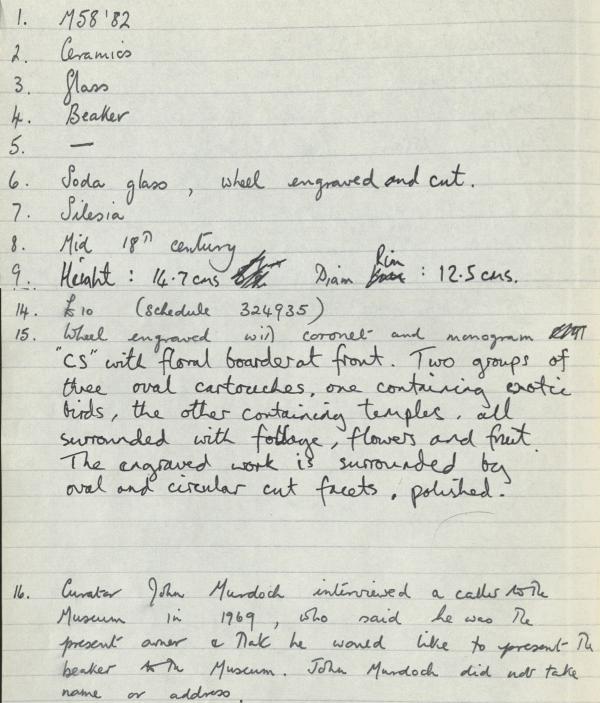 1. M58'82
2. Ceramics
3. Glass
4. Beaker
5. —
6. Soda glass, wheel engraved and cut.
7. Silesia
8. Mid 18th century
9. Height : 14.7cms Diam Rim : 12.5 cms.
14. £10 (schedule 324935)
15. Wheel engraved with coronet and monogram
"CS" with floral boarder at front. Two groups of
three oval cartouches, one containing exotic
birds, the other containing temples, all
surrounded with foliage, flowers and fruit.
The engraved work is surrounded by
oval and circular cut facets, polished.
16. Curator John Murdoch interviewed a caller to the
Museum in 1969, who said he was the
present owner & that he would like to present the
beaker to the Museum. John Murdoch did not take
name or address.